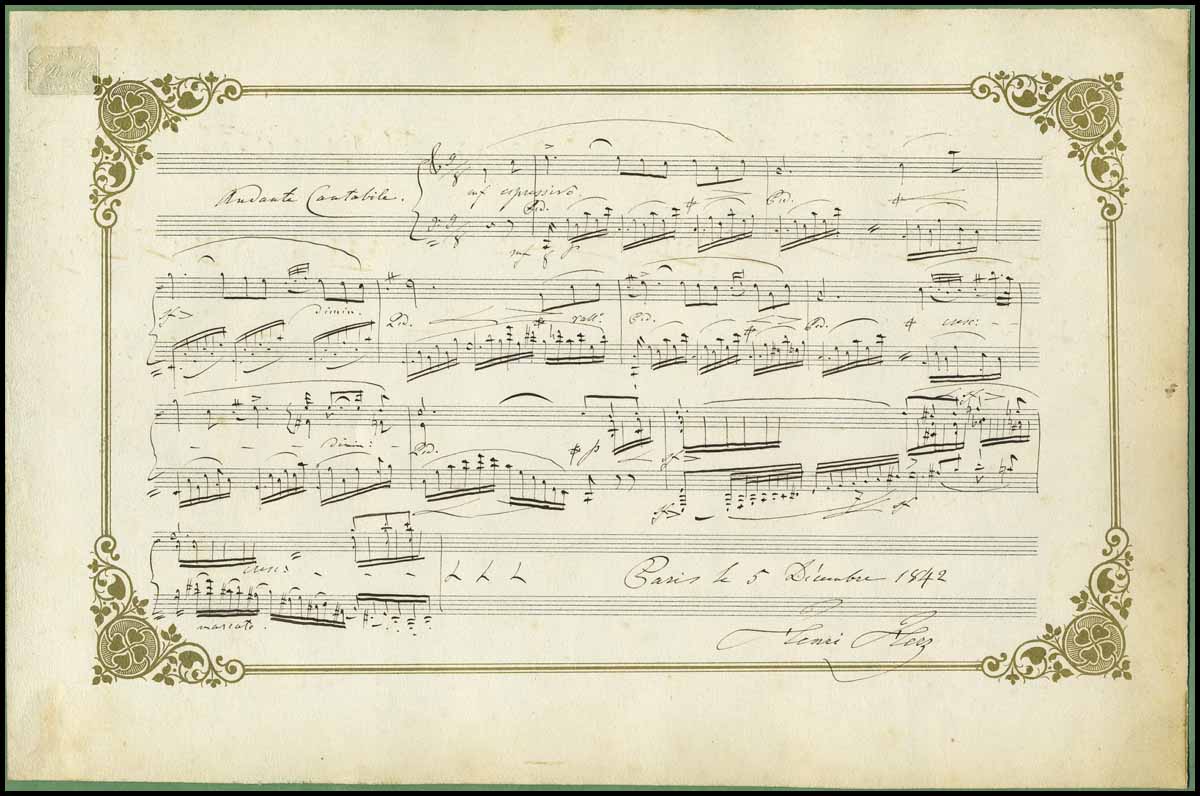 Andante Cantabile.
mf espressivo
Ped. Ped.
mf p
sf> dimin. Ped. rall: Ped. Ped. cresc: - -
- - - dimin: - Ped. p sf>
sf> sf
cresc: - - - -
marcato.
Paris le 5 Décembre 1842
Henri Herz